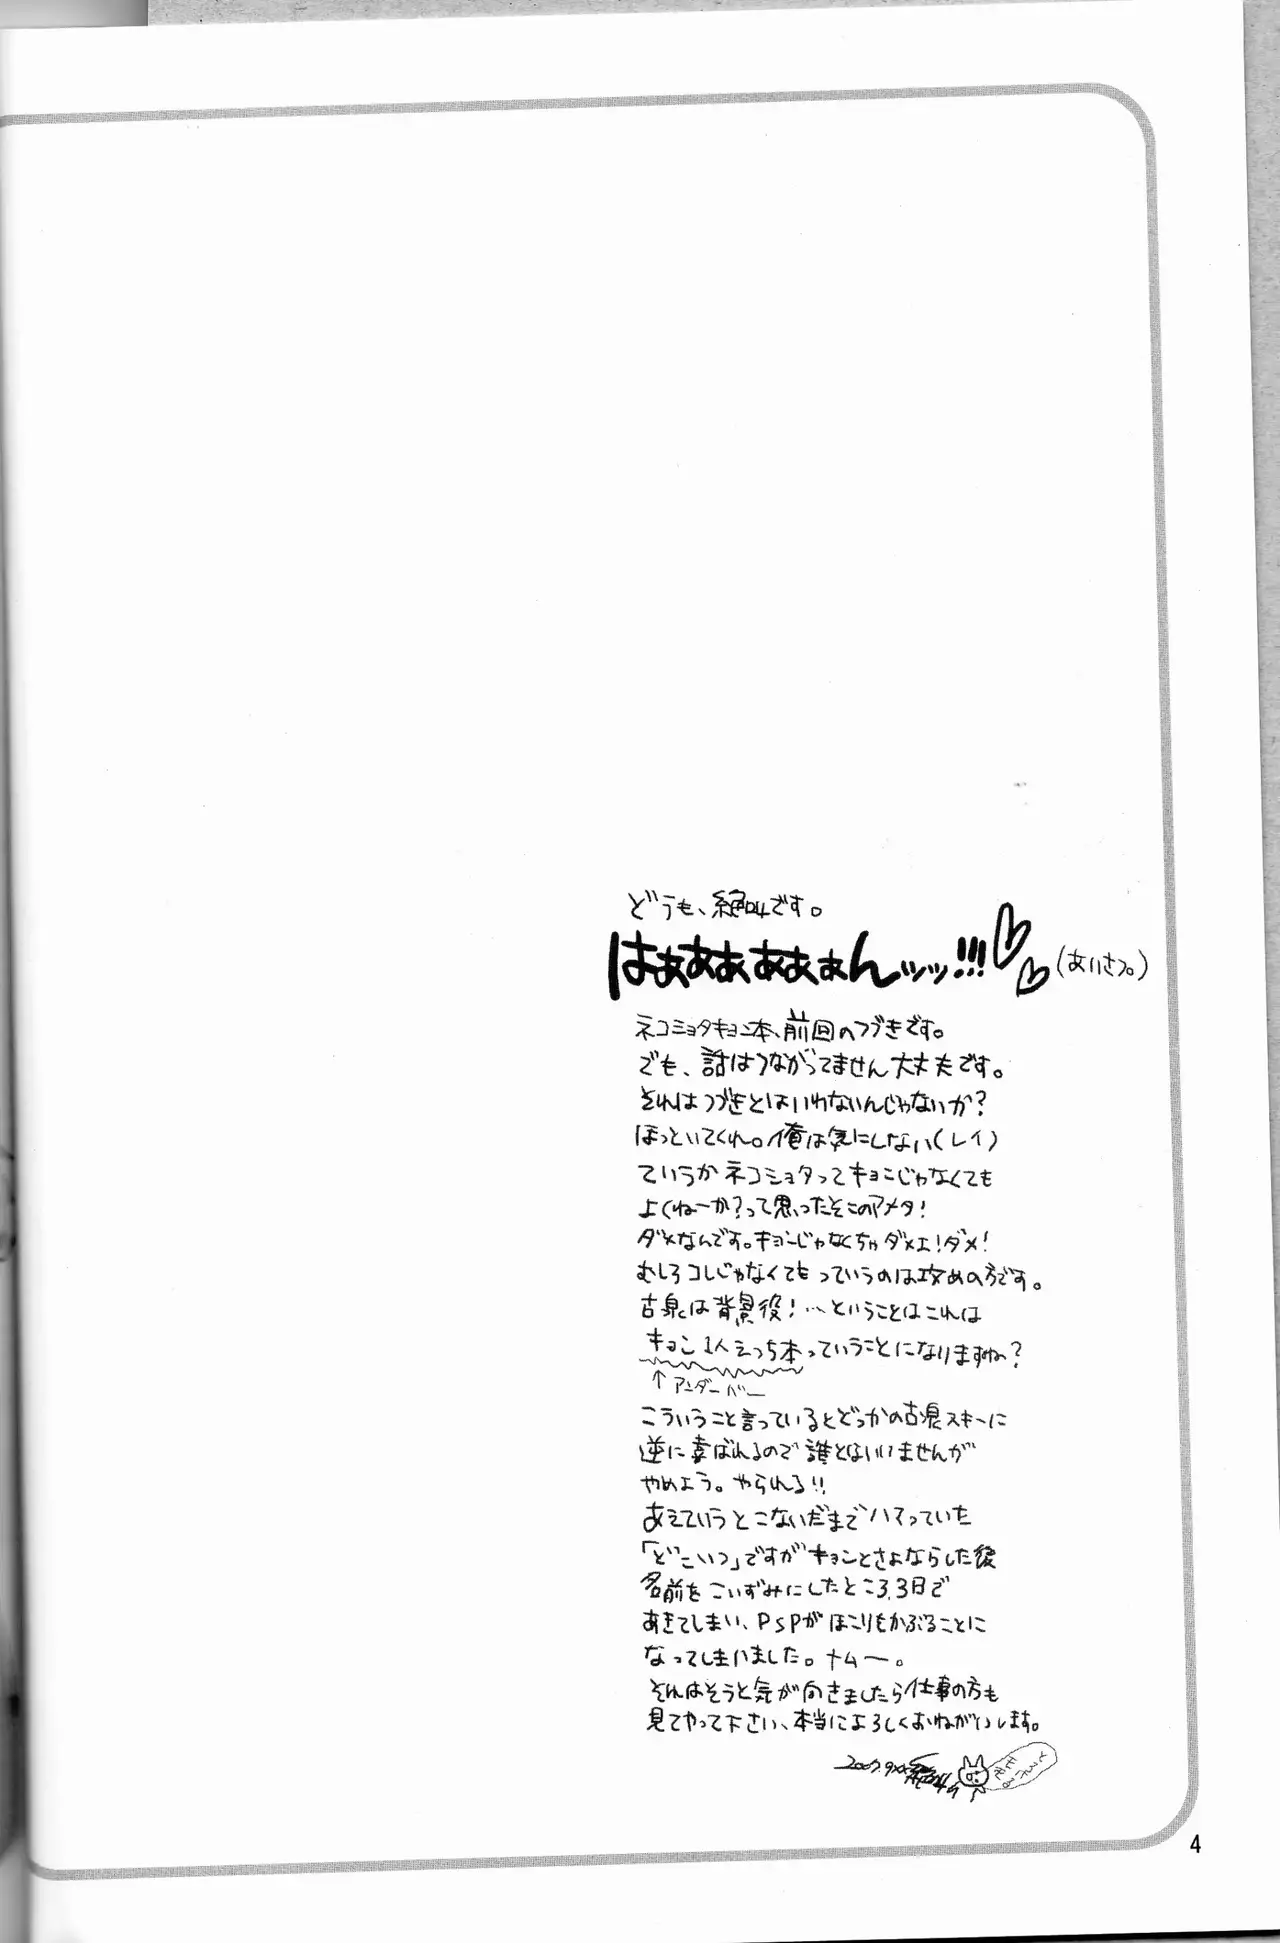 どうも、絶叫です。
はぁぁあぁぁあぁぁんッッ!!!♡♡(あいさつ。)
ネコショタキョン本、前回のつづきです。
でも、話はつながってません大丈夫です。
それはつづきとはいわないんじゃないか?
ほっといてくれ。俺は気にしない(レイ)
ていうかネコショタってキョンじゃなくても
よくねーか?って思ったそこのアメタ!
ダメなんです。キョンじゃなくちゃダメェ!ダメ!
むしろコレじゃなくてもっていうのは攻めの方です。
古泉は背景役!…ということはこれは
キョン1人えっち本っていうことになりますね?
↑アンダーバー
こういうこと言っているとどっかの古泉スキーに
逆に喜ばれるので誰とはいいませんが
やめよう。やられる!!
あえていうとこないだまでハマっていた
「どこいつ」ですがキョンとさよならした後
名前をこいずみにしたところ、3日で
あきてしまい、PSPがほこりをかぶることに
なってしまいました。ナムー。
それはそうと気が向きましたら仕事の方も
見てやって下さい、本当によろしくおねがいします。
2007.9.xx
4